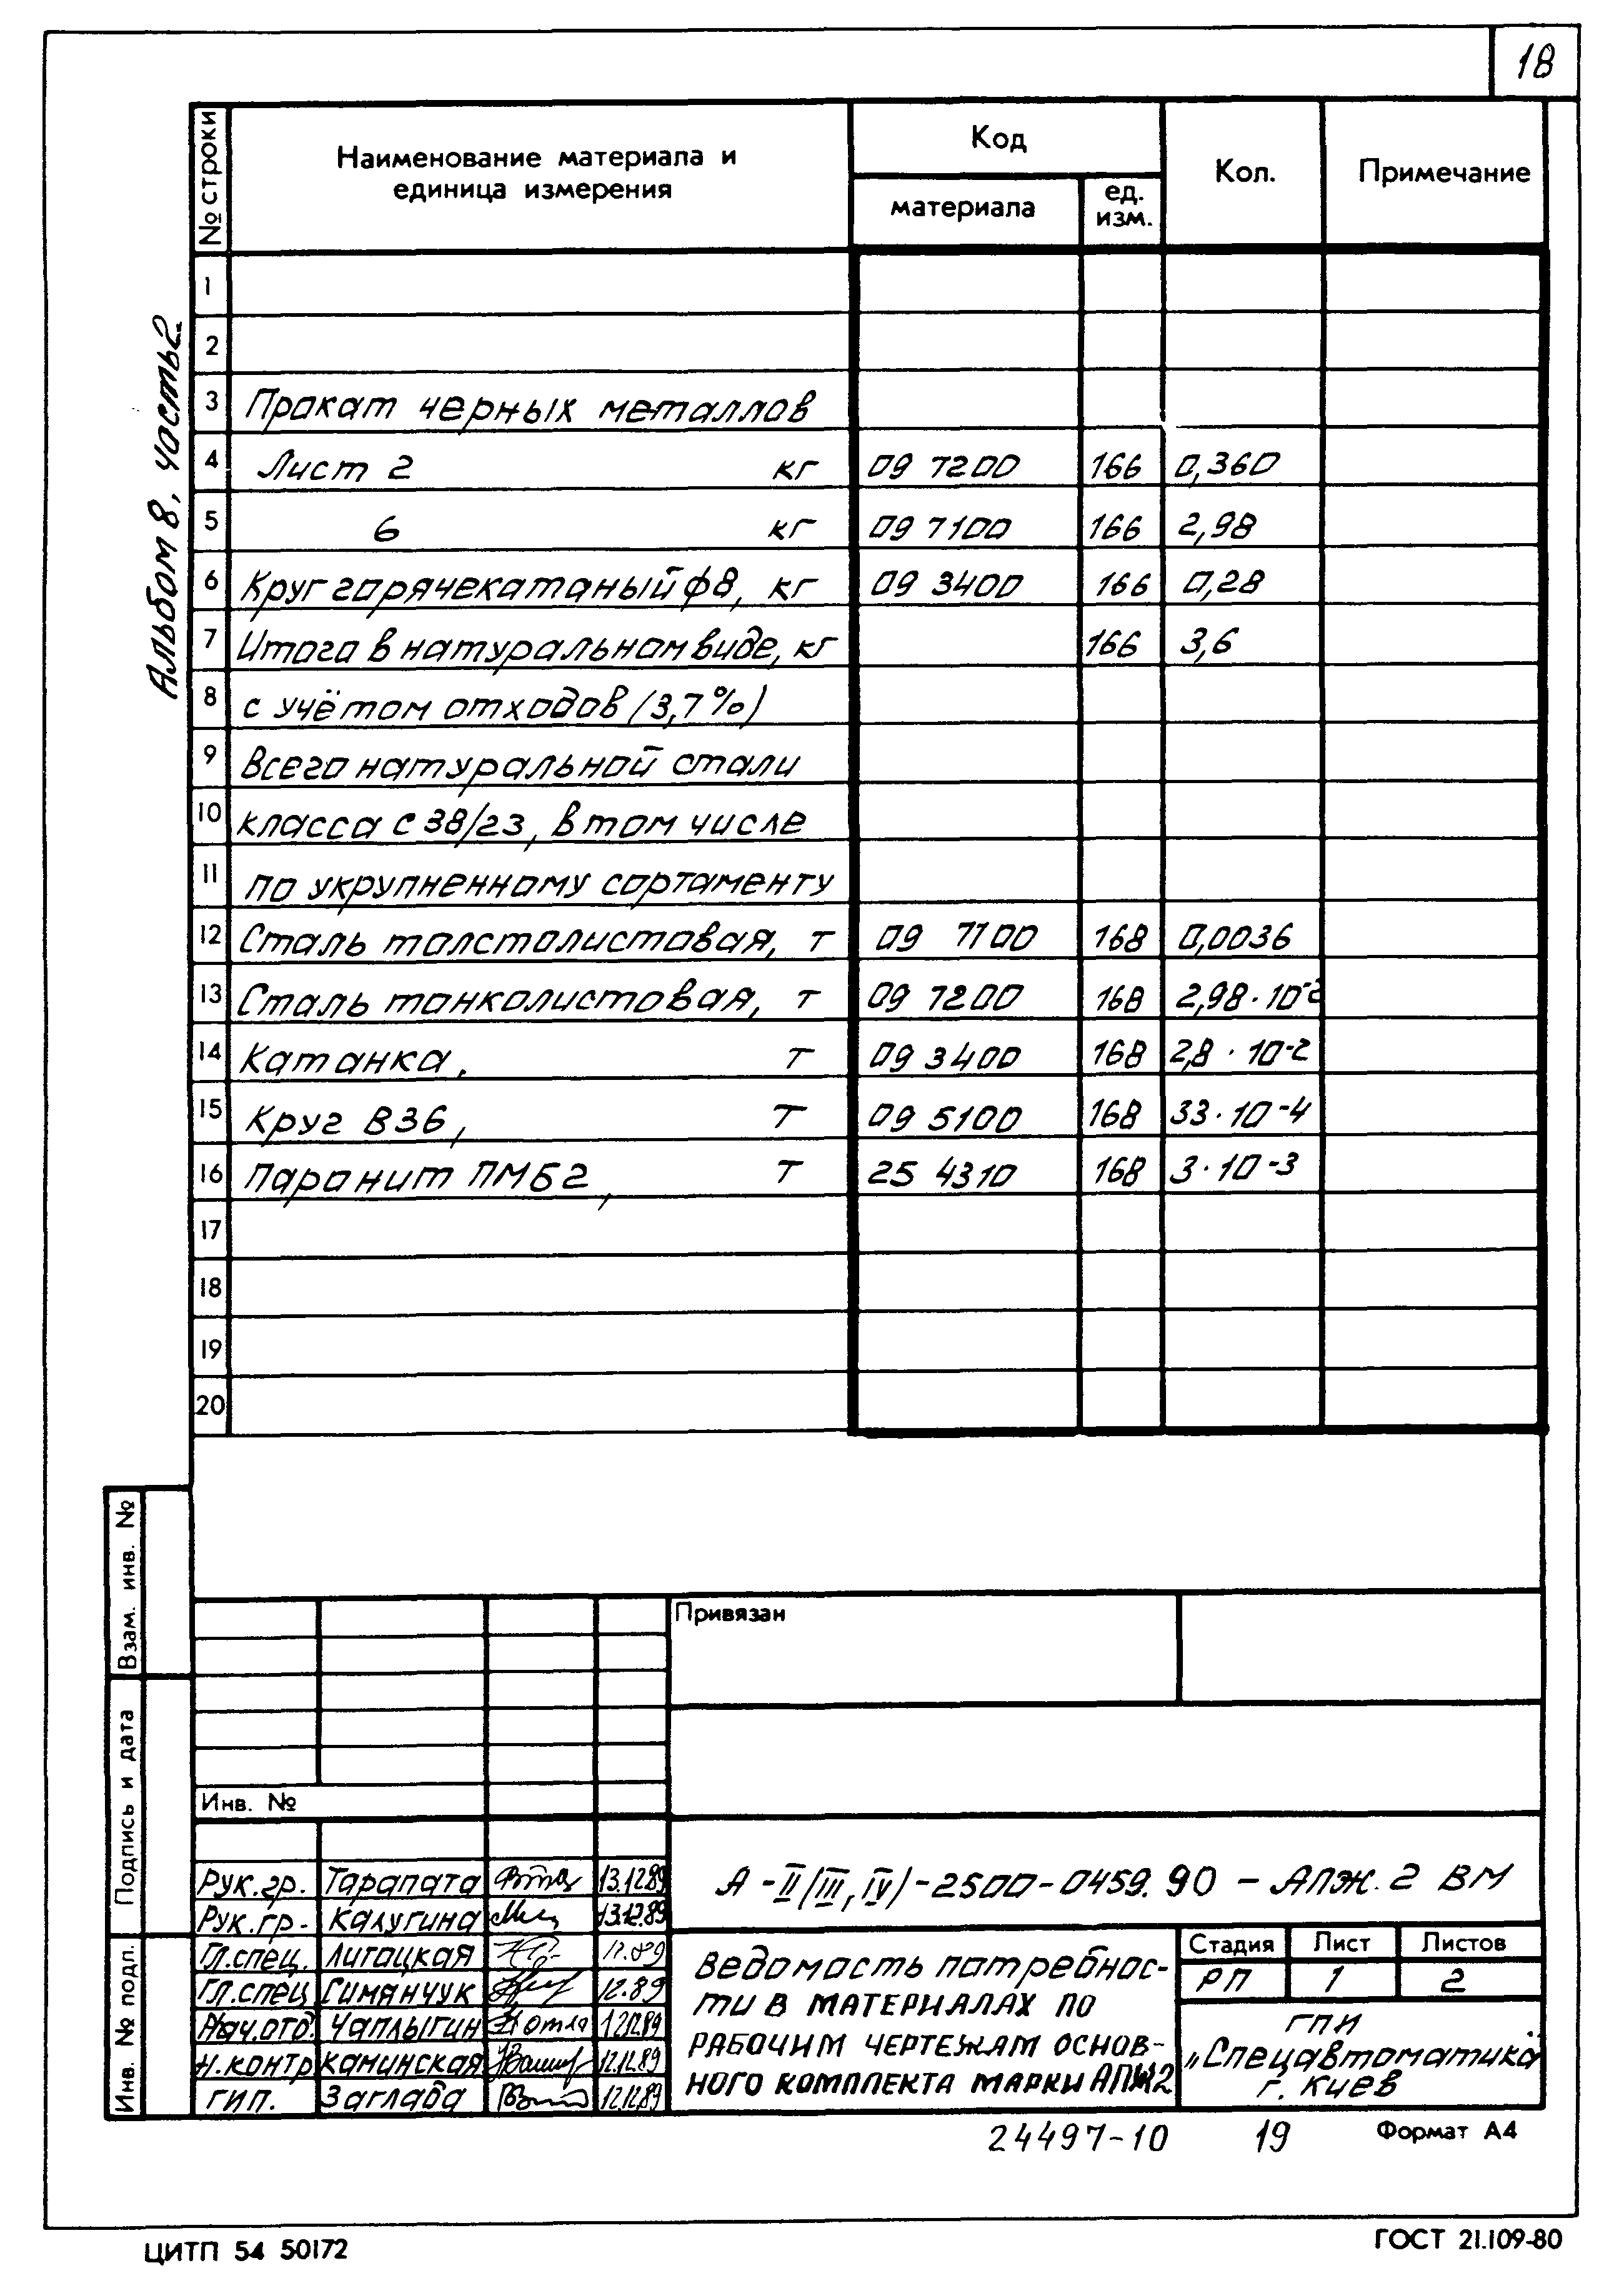 18
Альбом 8, часть 2
№ строки
Наименование материала и
единица измерения
Код
материала
ед.
изм.
Кол.
Примечание
1
2
3 Прокат черных металлов
4 Лист 2 кг 09 7200 166 0,360
5 6 кг 09 7100 166 2,98
6 Круг горячекатаный ф8, кг 09 3400 166 0,28
7 Итого в натуральном виде, кг 166 3,6
8 с учётом отходов (3,7%)
9 Всего натуральной стали
10 класса с 38/23, в том числе
11 по укрупненному сортаменту
12 Сталь толстолистовая, т 09 7100 168 0,0036
13 Сталь тонколистовая, т 09 7200 168 2,98·10-2
14 Катанка, т 09 3400 168 2,8·10-2
15 Круг В36, т 09 5100 168 33·10-4
16 Паронит ПМБ2, т 25 4310 168 3·10-3
17
18
19
20
Взам. инв. №
Подпись и дата
Инв. № подл.
Привязан
Инв. №
Рук.гр. Тарапата 13.12.89
Рук.гр. Калугина 13.12.89
Гл.спец. Литацкая 12.89
Гл.спец Симянчук 12.89
Нач.отд. Чаплыгин 12.12.89
Н.контр Каминская 12.12.89
ГИП. Заглада 12.12.89
А-II(III,IV)-2500-0459.90-АПЖ.2 ВМ
Ведомость потребнос-
ти в материалах по
рабочим чертежам основ-
ного комплекта марки АПЖ2
Стадия Лист Листов
РП 1 2
ГПИ
„Спецавтоматика"
г. Киев
24497-10 19 Формат А4
ЦИТП 54 50172
ГОСТ 21.109-80